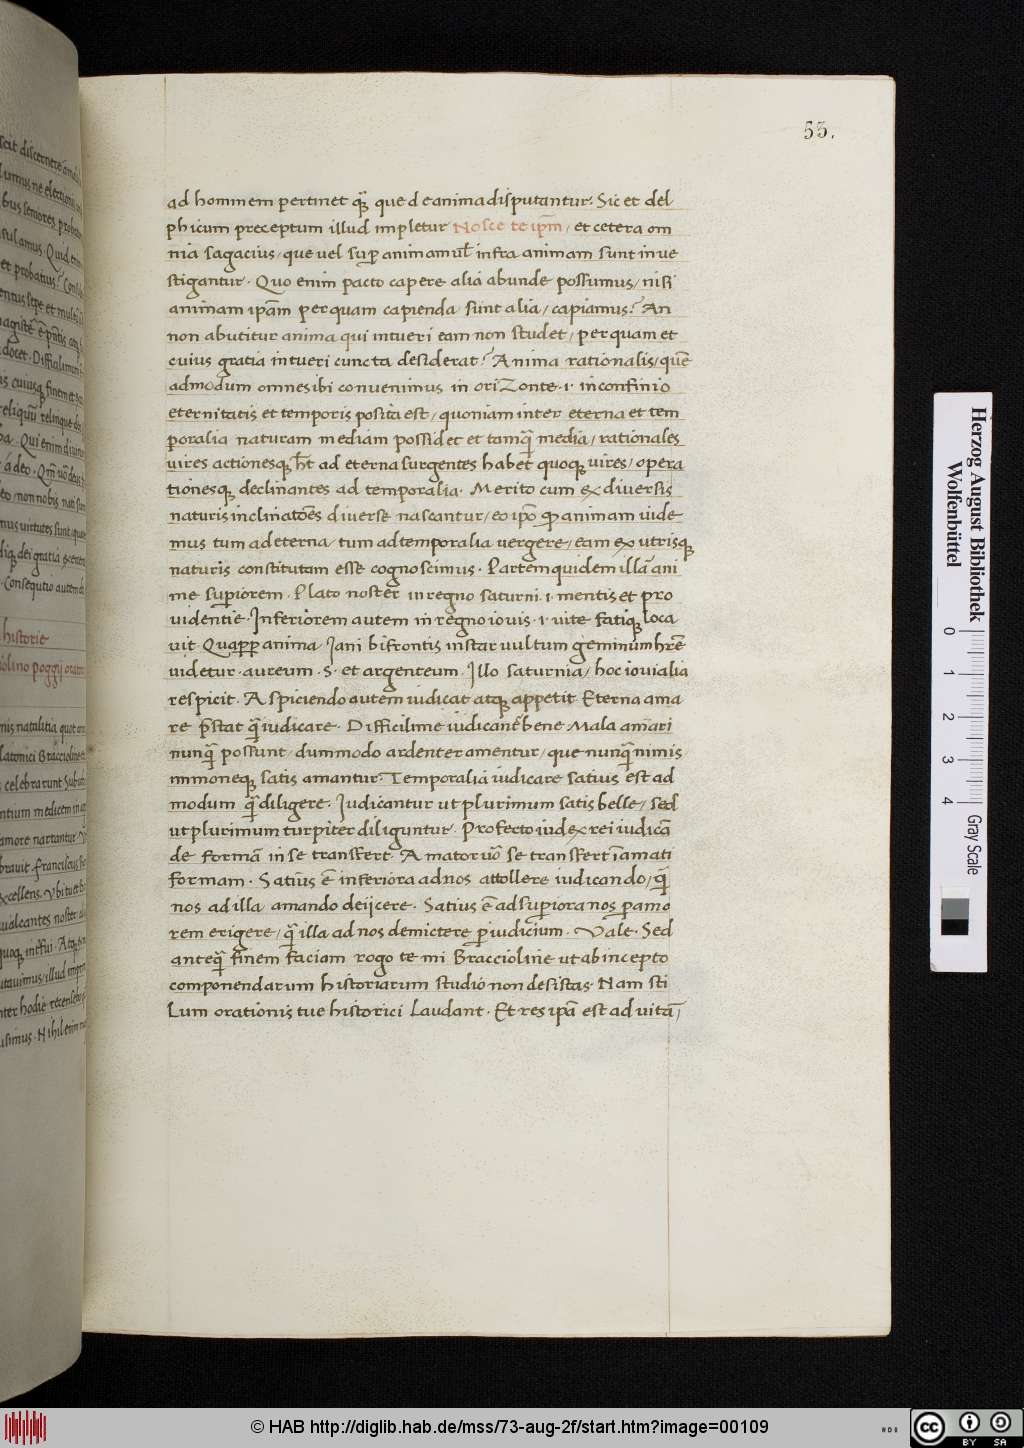 53.
ad hominem pertinet qua᷒ que de anima disputantur. Sic et del
phicum preceptum illud impletur Nosce te ip̄m / et cetera om
nia sagacius / que vel sup̄ animam ul̄ infra animam sunt inve
stigantur. Quo enim pacto capere alia abunde possumus / nisi
animam ip̄am per quam capienda sunt alia / capiamus? An
non abutitur anima qui intueri eam non studet / per quam et
cuius gratia intueri cuncta desiderat? Anima rationalis / quē
admodum omnes ibi convenimus in oriZonte .i. in confinio
eternitatis et temporis posita est / quoniam inter eterna et tem
p̄oralia naturam mediam possidet et tamq̄ media / rationales
vires actionesq; h̄t ad eterna surgentes habet quoq; vires / opera
tionesq; declinantes ad temporalia. Merito cum ex diversis
naturis inclinatōēs diverse nascantur / eo ip̄o qp animam vide
mus tum ad eterna / tum ad temporalia vergere / eam ex utrisq;
naturis constitutam esse cognoscimus. Partem quidem illā ani
me sup̄iorem. Plato noster in regno saturni .i. mentis et pro
videntie. Inferiorem autem in regno iovis .i. vite fatiq; loca
vit. Quap̄p̄ anima Jani bifrontis instar vultum geminum hrē
videtur. aureum .S. et argenteum. Illo saturnia / hoc iovialia
respicit. Aspiciendo autem iudicat atq; appetit. Eterna ama
re p̄stat q̄ iudicare. Difficilime iudicant᷒ bene Mala amari
nunq̄ possunt. dummodo ardenter amentur / que nunq̄ nimis /
immoneq; satis amantur. Temporalia iudicare satius est ad
modum q̄ diligere. Iudicantur ut plurimum satis belle / sed
ut plurimum turpiter diliguntur. Profecto iudex rei iudicā
de formā in se transfert. Amator uō se transfert ī amati
formam. Satius ē inferiora ad nos attollere iudicando / q̄
nos ad illa amando deijcere. Satius ē ad sup̄iora nos p̄ amo
rem erigere / q̄ illa ad nos demictere p̄ iudicium. Vale. Sed
anteq̄ finem faciam rogo te mi Braccioline ut ab incepto
componendarum historiarum studio non desistas. Nam sti
Lum orationis tue historici Laudant. Et res ipā est ad vitā /
historie
Herzog August Bibliothek
Wolfenbüttel
0 1 2 3 4
Gray Scale
© HAB http://diglib.hab.de/mss/73-aug-2f/start.htm?image=00109
cc BY SA